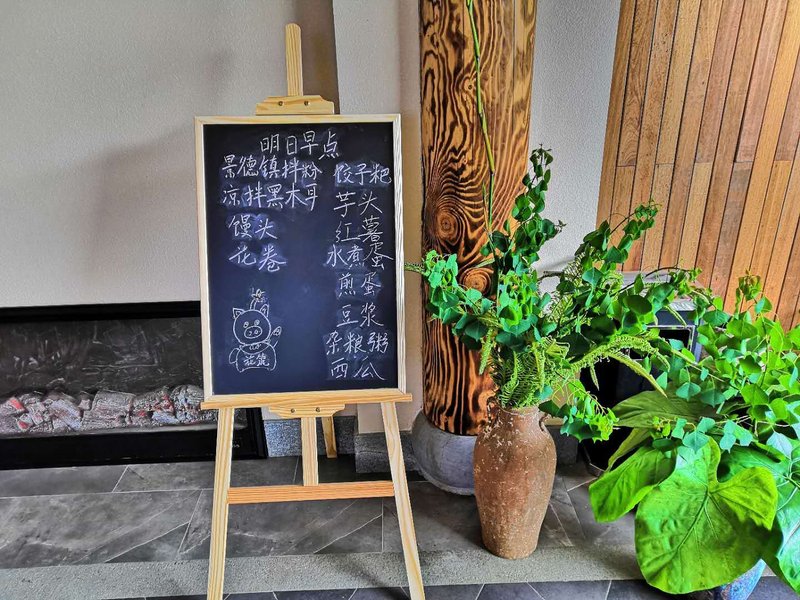 明日早点
景德镇拌粉
凉拌黑木耳
馒头
花卷
饺子粑
芋头
红薯
水煮蛋
煎蛋
豆浆
杂粮粥
西瓜